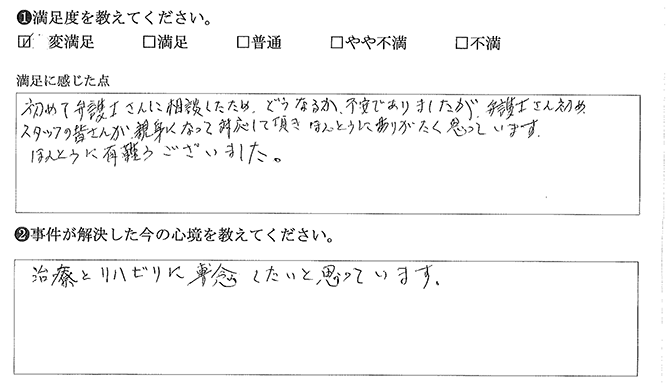 ❶満足度を教えてください。
☑ 変満足 □満足 □普通 □やや不満 □不満
満足に感じた点
初めて弁護士さんに相談したため、どうなるか、不安でありましたが、弁護士さん初め、
スタッフの皆さんが、親身になって対応して頂きほんとうにありがたく思っています。
ほんとうに有難うございました。
❷事件が解決した今の心境を教えてください。
治療とリハビリに専念したいと思っています。